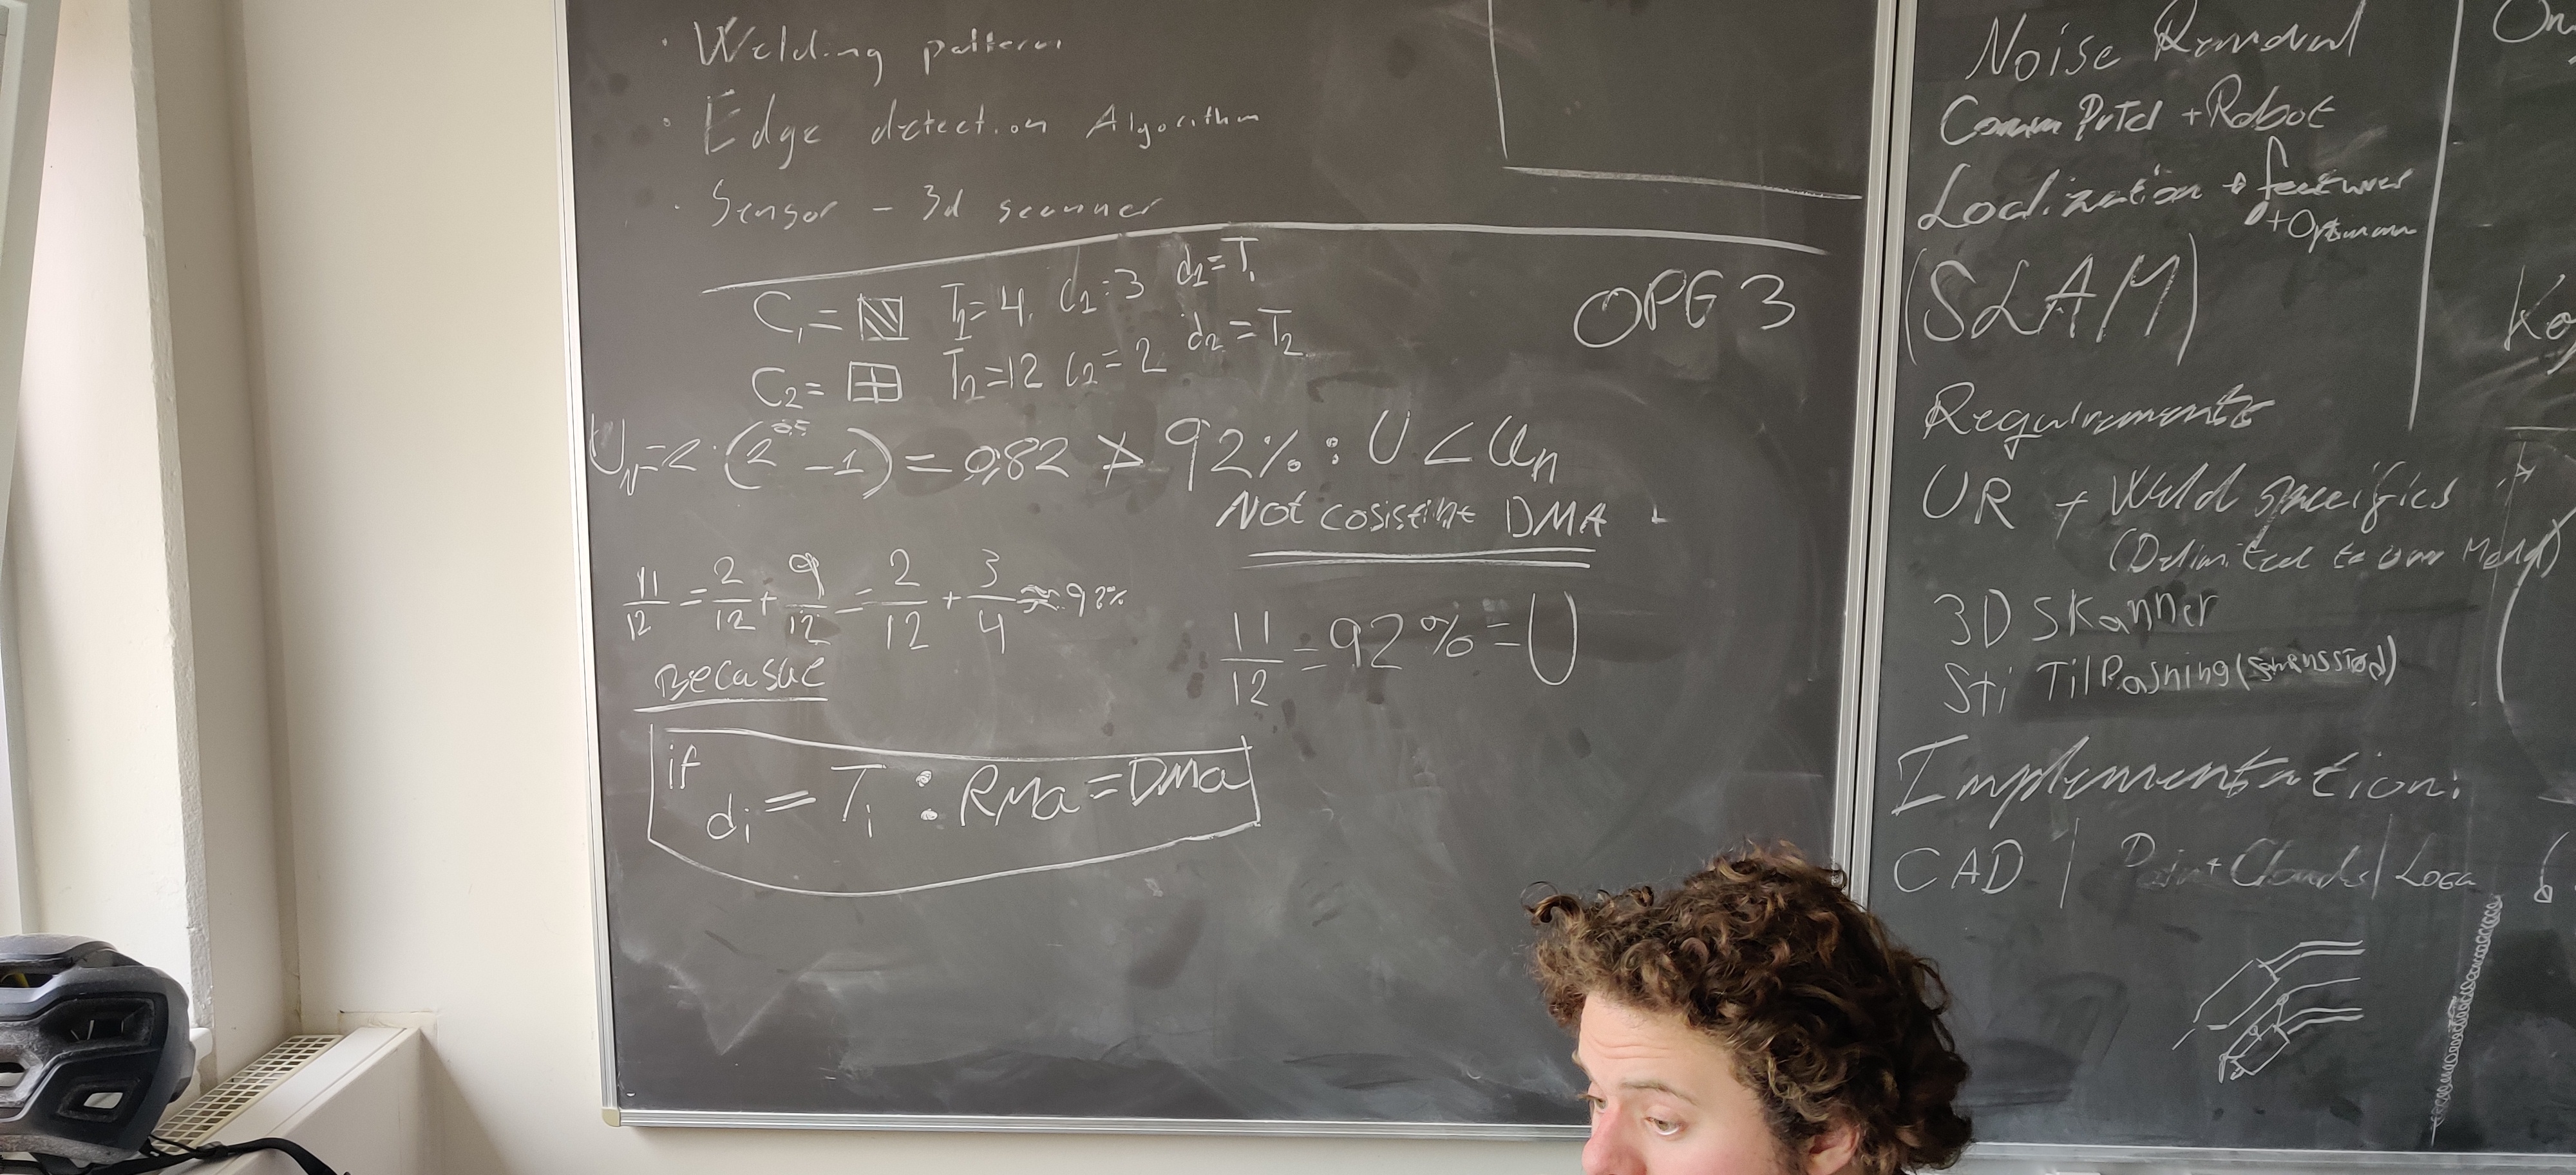 · Welding pattern
· Edge detection Algorithm
· Sensor - 3d scanner
C₁= T₁=4, C₁=3 d₁=T₁
C₂= T₂=12 C₂=2 d₂=T₂
OPG 3
Uₙ=2·(2^0.5 -1)=0,82 ≯ 92% : U < Uₙ
Not cosistint DMA
11/12 = 2/12 + 9/12 = 2/12 + 3/4 ≈ 92%
11/12 = 92% = U
Becasue
if
dᵢ = Tᵢ : RMa = DMa
Noise Removal
Comm + Robot
Loclization + features
+
(SLAM)
Requirements
UR + Weld specifics
(Delimited to our
3D Skanner
Sti TilPasning
Implementation:
CAD | Point Clouds |